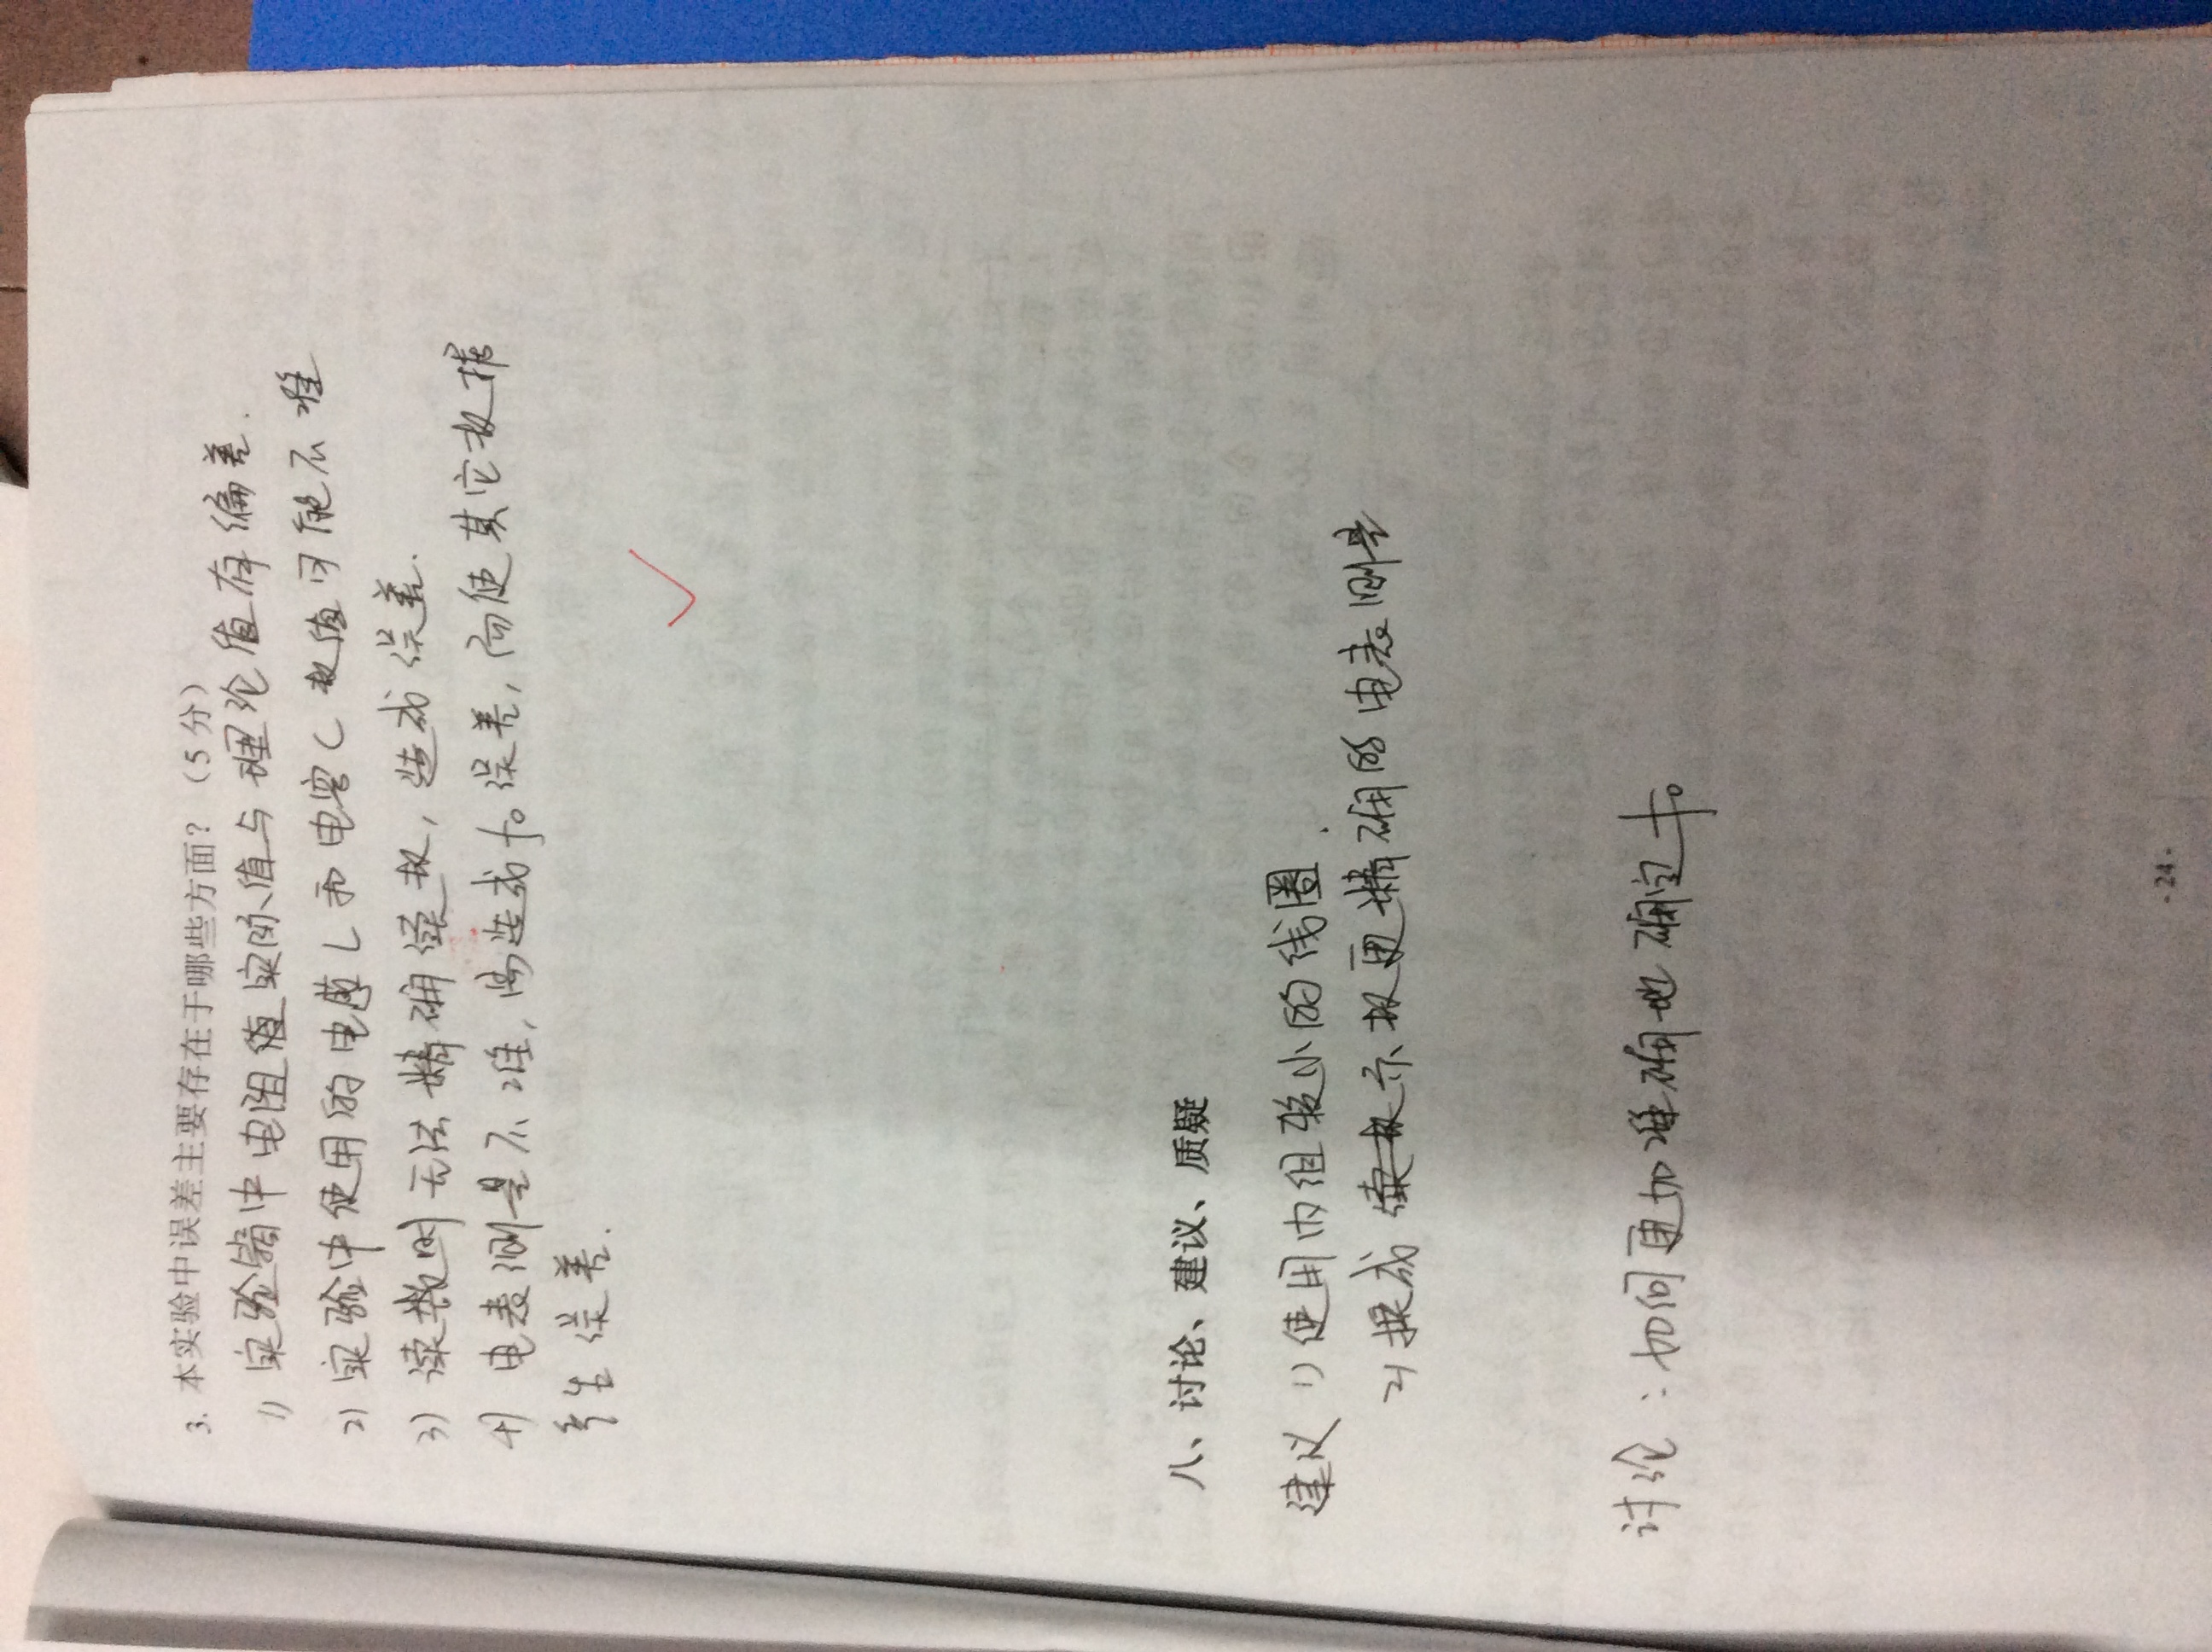 3. 本实验中误差主要存在于哪些方面？（5分）
1) 实验箱中电阻值实际值与理论值存偏差.
2) 实验中使用的电感L和电容C数值可能不准
3) 读数时无法精确读取，造成误差.
4) 电表测量不准，将造成f₀误差，而使其它数据
产生误差.
八、讨论、建议、质疑
建议 1) 使用内阻较小的线圈.
2) 换成 示数更精确的电表测量
讨论：如何更加准确地确定f₀
·24·